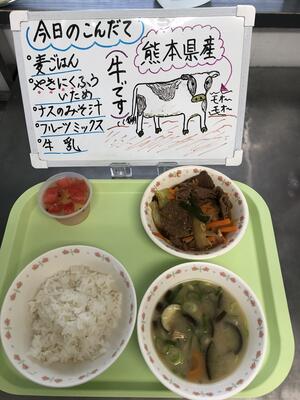 今日のこんだて
・麦ごはん
・やきにくふう
いため
・ナスのみそ汁
・フルーツミックス
・牛乳
牛です
熊本県産
モォ〜
モォ〜